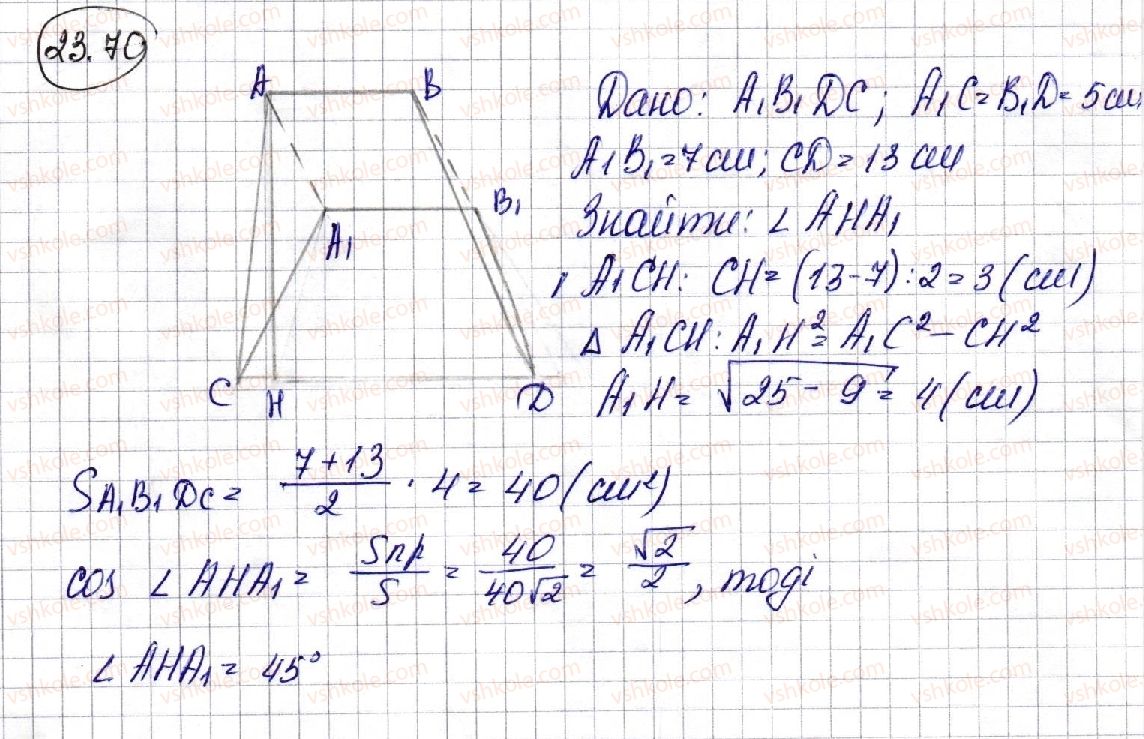 23.70
A B
B₁
A₁
C H D
Дано: A₁B₁DC; A₁C=B₁D=5см
A₁B₁=7см; CD=13 см
Знайти: ∠AHA₁
A₁CH: CH=(13-7):2=3(см)
△ A₁CH: A₁H²=A₁C²-CH²
A₁H=√25-9=4(см)
S A₁B₁DC = 7+13/2 · 4=40(см²)
cos ∠AHA₁= Sпр/S = 40/40√2 = √2/2, тоді
∠AHA₁=45°
vshkole.com